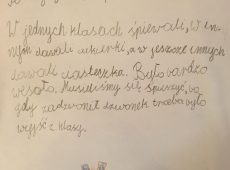 W jednych klasach śpiewali, w in-
nych dawali cukierki, a w jeszcze innych
dawali ciasteczka. Było bardzo
wesoło. Musieliśmy się śpieszyć, bo
gdy zadzwonił dzwonek trzeba było
wyjść z klasy.